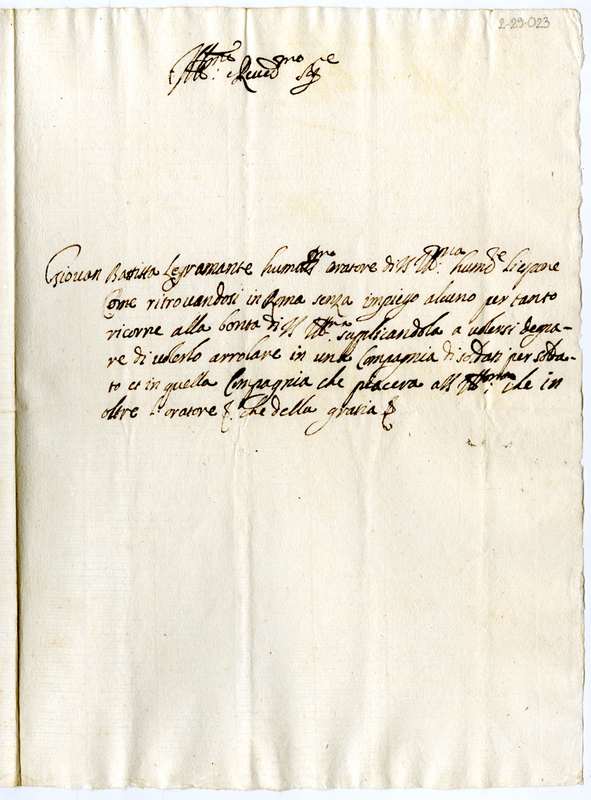 2-29-023
Ill.mo e Reued.mo Sig.re
Giouan Batista Legramante humiliss.mo oratore di VS Ill.ma hum.te li espone
Come ritrouandosi in Roma senza impiego alcuno per tanto
ricorre alla bonta di VS Ill.ma supplicandola a uolersi degna-
re di uolerlo arrolare in una Compagnia di soldati per solda-
to et in quella Compagnia che piacera a VS Ill.ma che in
oltre l'oratore che della gratia